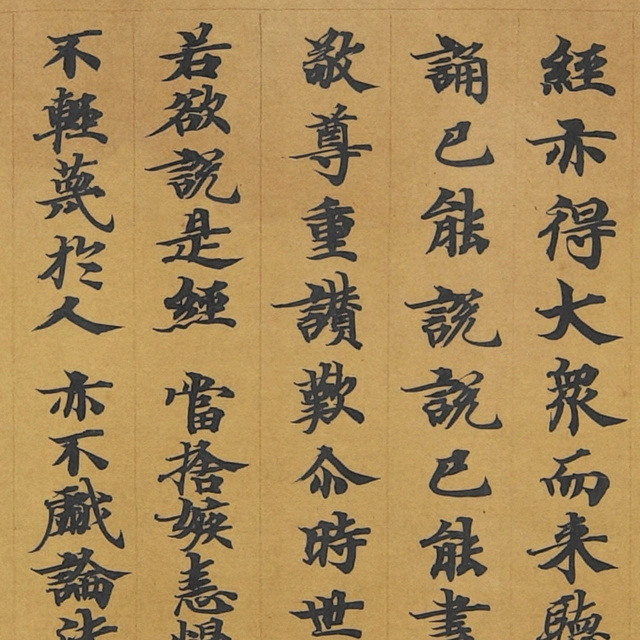 經亦得大衆而来聽
誦已能説説已能書
敬尊重讃歎尒時世
若欲説是經　當捨嫉恚慢
不輕蔑於人　亦不戲論法